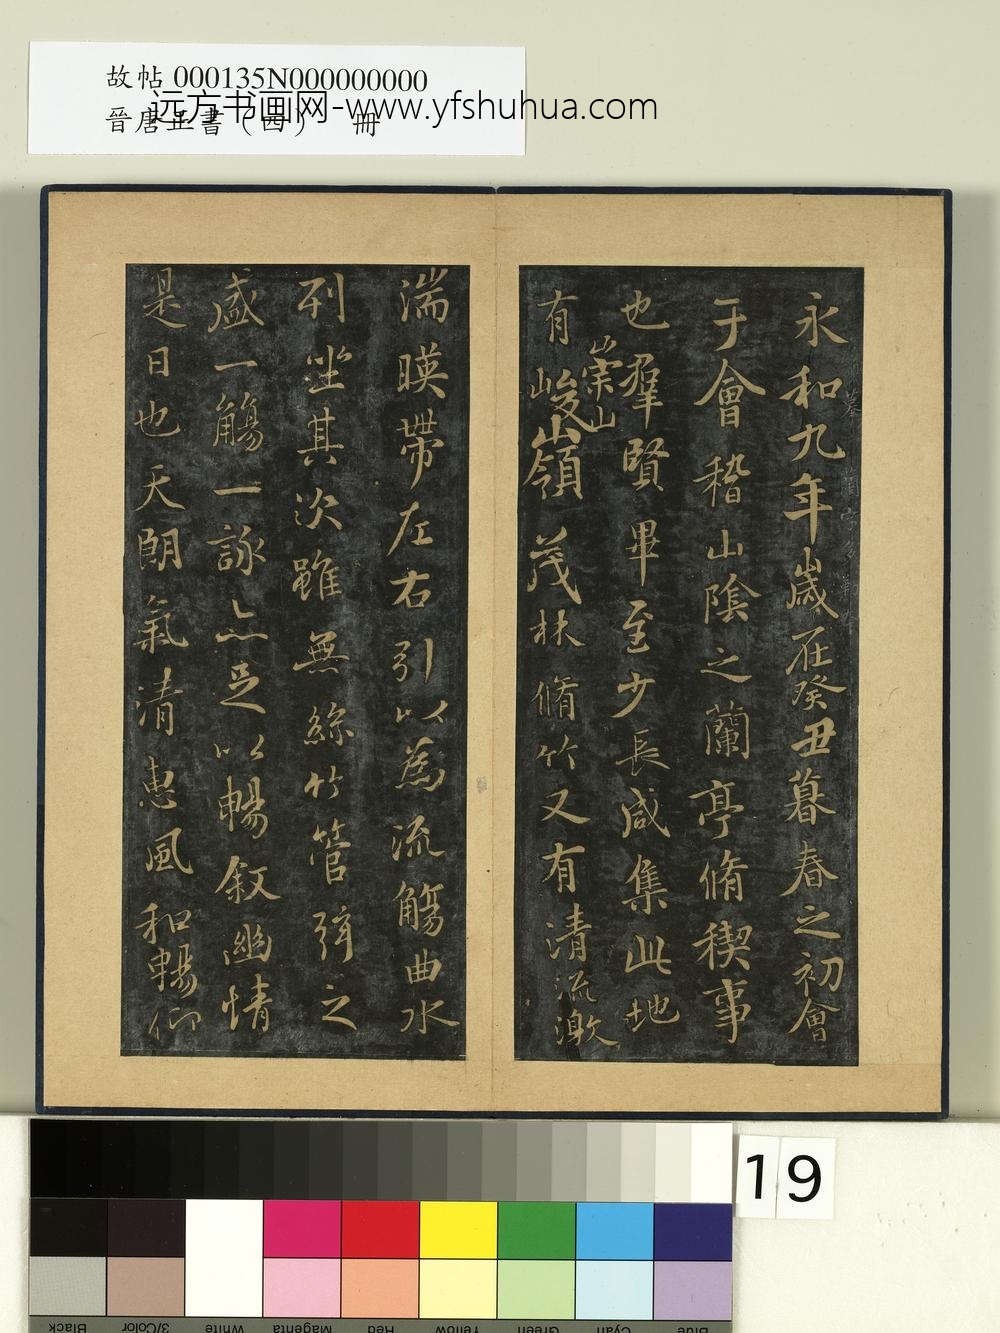 故帖 000135N000000000
晉唐正書（四） 冊
远方书画网-www.yfshuhua.com
永和九年歲在癸丑暮春之初會
于會稽山陰之蘭亭脩稧事
也羣賢畢至少長咸集此地
有崇山峻嶺茂林脩竹又有清流激
湍暎帶左右引以為流觴曲水
列坐其次雖無絲竹管弦之
盛一觴一詠亦足以暢敘幽情
是日也天朗氣清惠風和暢仰
19
Black
3/Color
White
Magenta
Red
Yellow
Green
Cyan
Blue